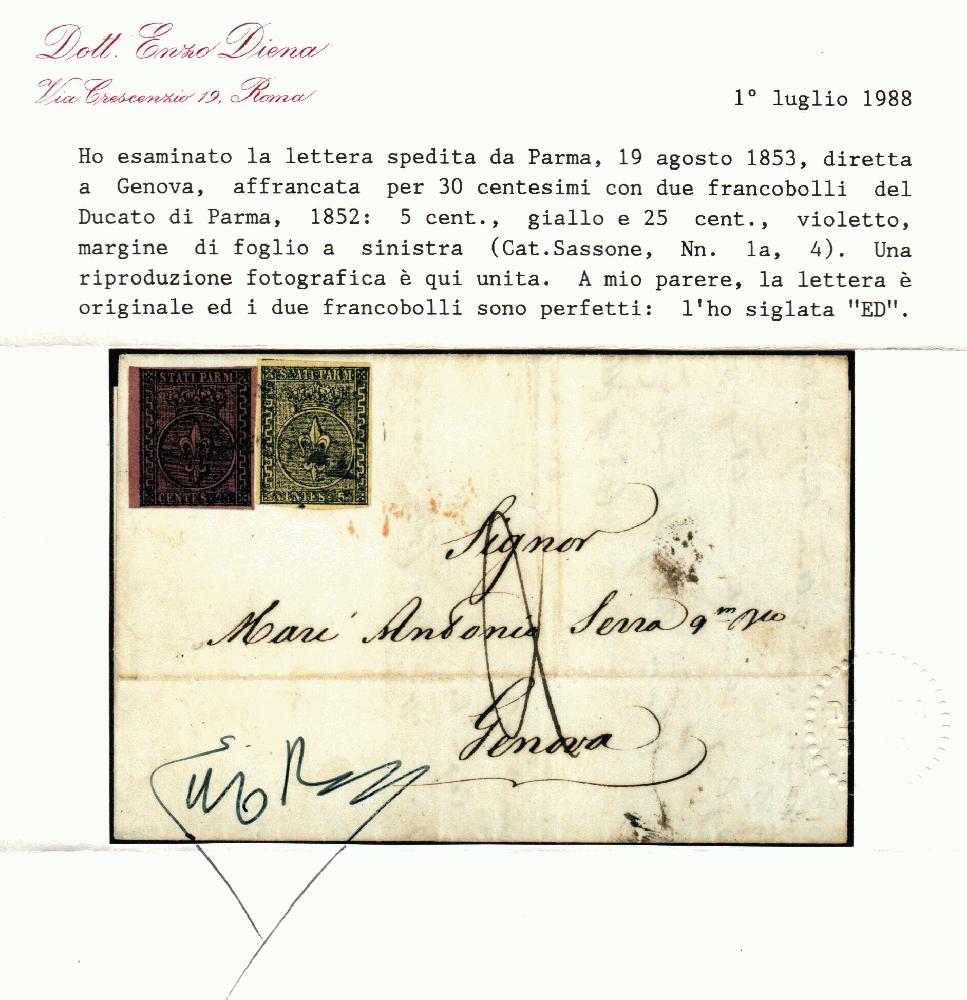 Dott. Enzo Diena
Via Crescenzio 19, Roma
1° luglio 1988
Ho esaminato la lettera spedita da Parma, 19 agosto 1853, diretta
a Genova, affrancata per 30 centesimi con due francobolli del
Ducato di Parma, 1852: 5 cent., giallo e 25 cent., violetto,
margine di foglio a sinistra (Cat.Sassone, Nn. 1a, 4). Una
riproduzione fotografica è qui unita. A mio parere, la lettera è
originale ed i due francobolli sono perfetti: l'ho siglata "ED".
STATI PARM
CENTES. 25
STATI PARM
CENTES. 5
Signor
Marc Antonio Serra
Genova